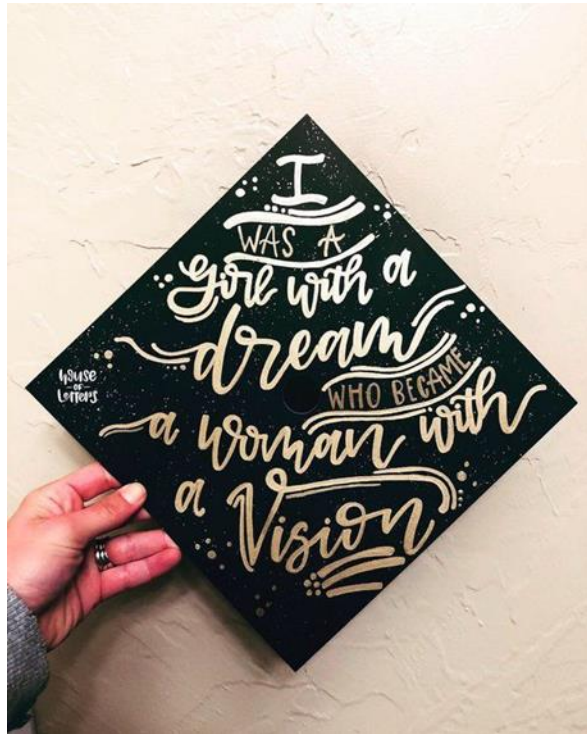 I
WAS A
girl with a
dream
WHO BECAME
a woman with
a Vision
house
OF
LETTERS